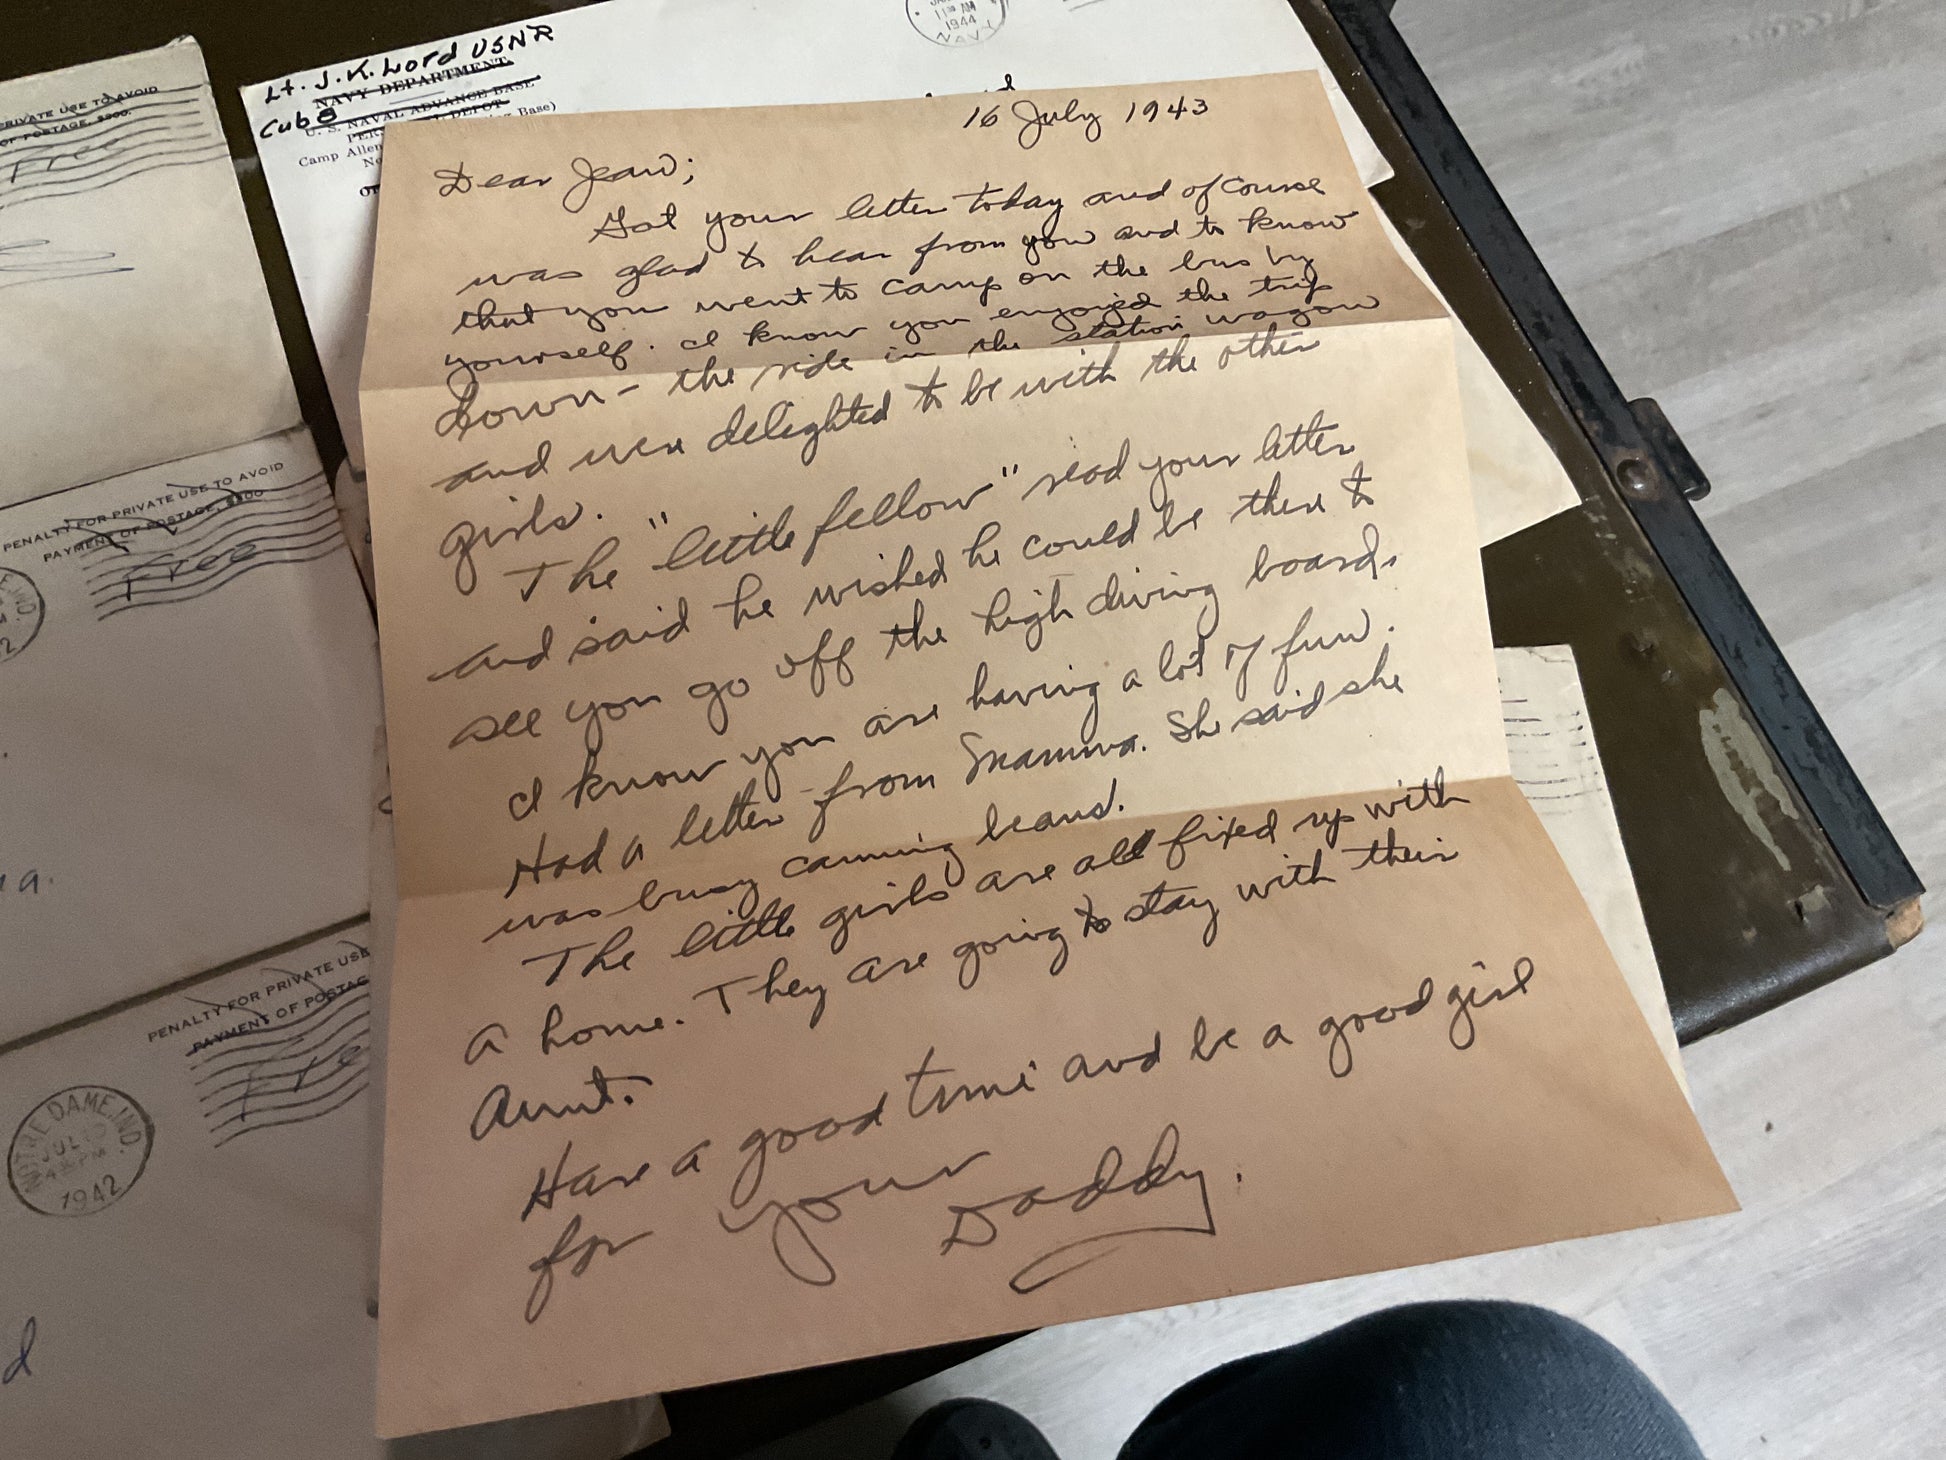 Lt. J. K. Lord USNR
NAVY DEPARTMENT
Cub 8
U. S. NAVAL ADVANCE BASE
PERS DEPOT
Base)
Camp Allen
11 AM
1944
NAVY
PRIVATE USE TO AVOID
OF POSTAGE, $300.
Free
PENALTY FOR PRIVATE USE TO AVOID
PAYMENT OF POSTAGE, $300
Free
IND.
PENALTY FOR PRIVATE USE
PAYMENT OF POSTAG
Fre
NOTRE DAME, IND.
JUL
PM
1942
16 July 1943
Dear Jean;
Got your letter today and of course
was glad to hear from you and to know
that you went to camp on the bus by
yourself. I know you enjoyed the trip
down – the ride in the station wagon
and were delighted to be with the other
girls.
The "little fellow" read your letter
and said he wished he could be there to
see you go off the high diving board.
I know you are having a lot of fun.
Had a letter from Mamma. She said she
was busy canning beans.
The little girls are all fixed up with
a home. They are going to stay with their
Aunt.
Have a good time and be a good girl
for your
Daddy.